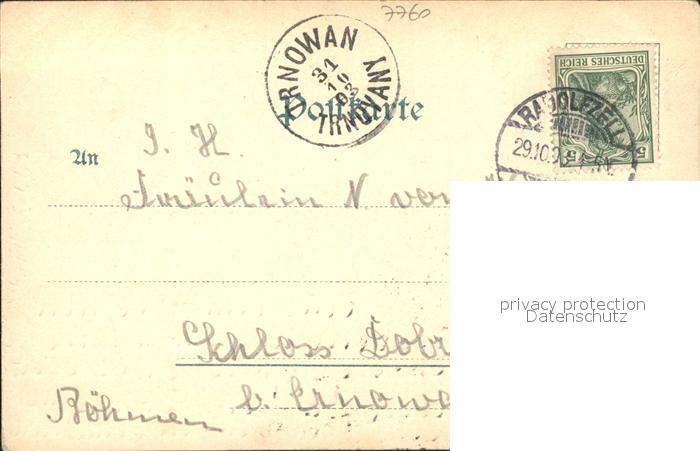 7760
TRNOWAN TRNOVANY
31
10
03
DEUTSCHES REICH
5 5
RADOLFZELL
29.10.
Postkarte
An
I. H.
Fräulein N. von
privacy protection
Datenschutz
Schloss Dobr
b. Trnowa
Böhmen